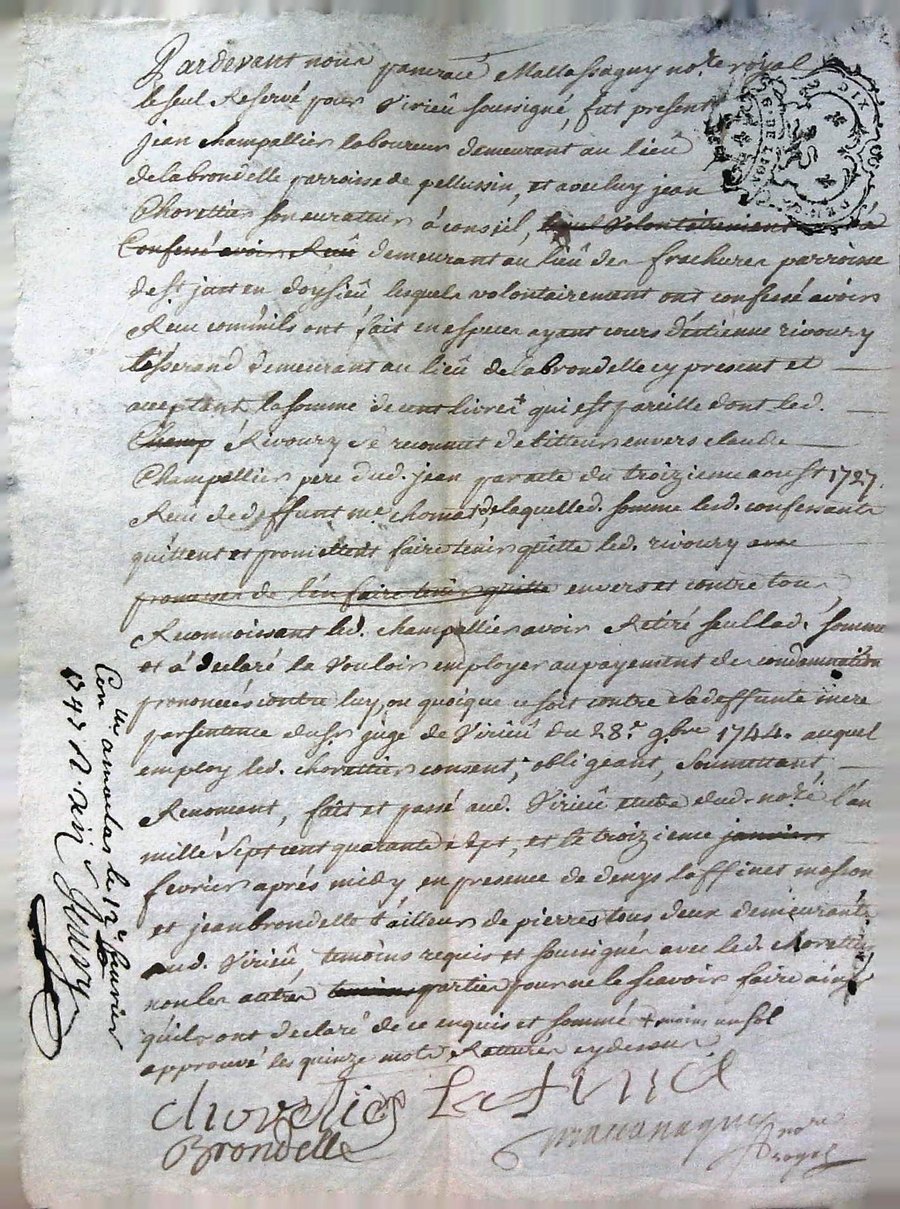 Pardevant nous pancrace Mallassagny no.re royal
le seul Reservé pour Virieû soussigné, fut present
jean champallier laboureur demeurant au lieû
de la brondelle parroisse de pellussin, et avec luy jean
Chorettier son curateur á conseil, volontairement
Confessé avoir Reçu demeurant au lieû des frachures parroisse
de st just en doysieû lesquels volontairement ont confessé avoir
Receu comm'ils ont fait en especes ayant cours d'etienne rivoury
tisserand demeurant au lieû de la brondelle cy present et
acceptant la somme de cent livres qui est pareille dont led.
Champ Rivoury se reconnut debitteur envers claude
Champallier pere dud. jean par acte du troizieme aoust 1727.
Receu de deffunt me. laquelle d. somme lesd. confessants
quittent et promettent faire tenir quitte led. rivoury avec
promesse de l'en faire tenir quitte envers et contre tous,
Reconnoissant led. champallier avoir Retiré seul lad. somme
et á declaré la vouloir employer au payement des condamnations
prononcées contre luy, ou quoique ce soit contre sa deffunte mere
par sentence du sr. juge de Virieû du 28.e 9bre 1744. auquel
employ led. chorettier consent, obligeant, soumettant
Renonçant, fait et passé aud. Virieû etude dud. no.re l'an
mille sept cent quarante sept, et le troizieme janvier
fevrier aprés midy en presence de denys laffinet masson
et jean brondelle tailleur de pierres tous deux demeurants
aud. Virieû temoins requis et soussignés avec led. chorettier
non les autres temoins parties pour ne le scavoir faire ainsi
qu'ils ont declaré de ce enquis et sommé un sol
approuvé les quinze mots Ratturés cy dessus
Brondelle
no.re
royal
Con.lé a le 12e fevrier
1747 R. dix s.